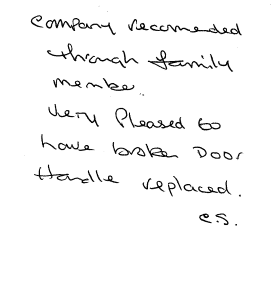 Company recomended
through family
membe..
Very Pleased to
have broken Door
Handle replaced.
e.s.